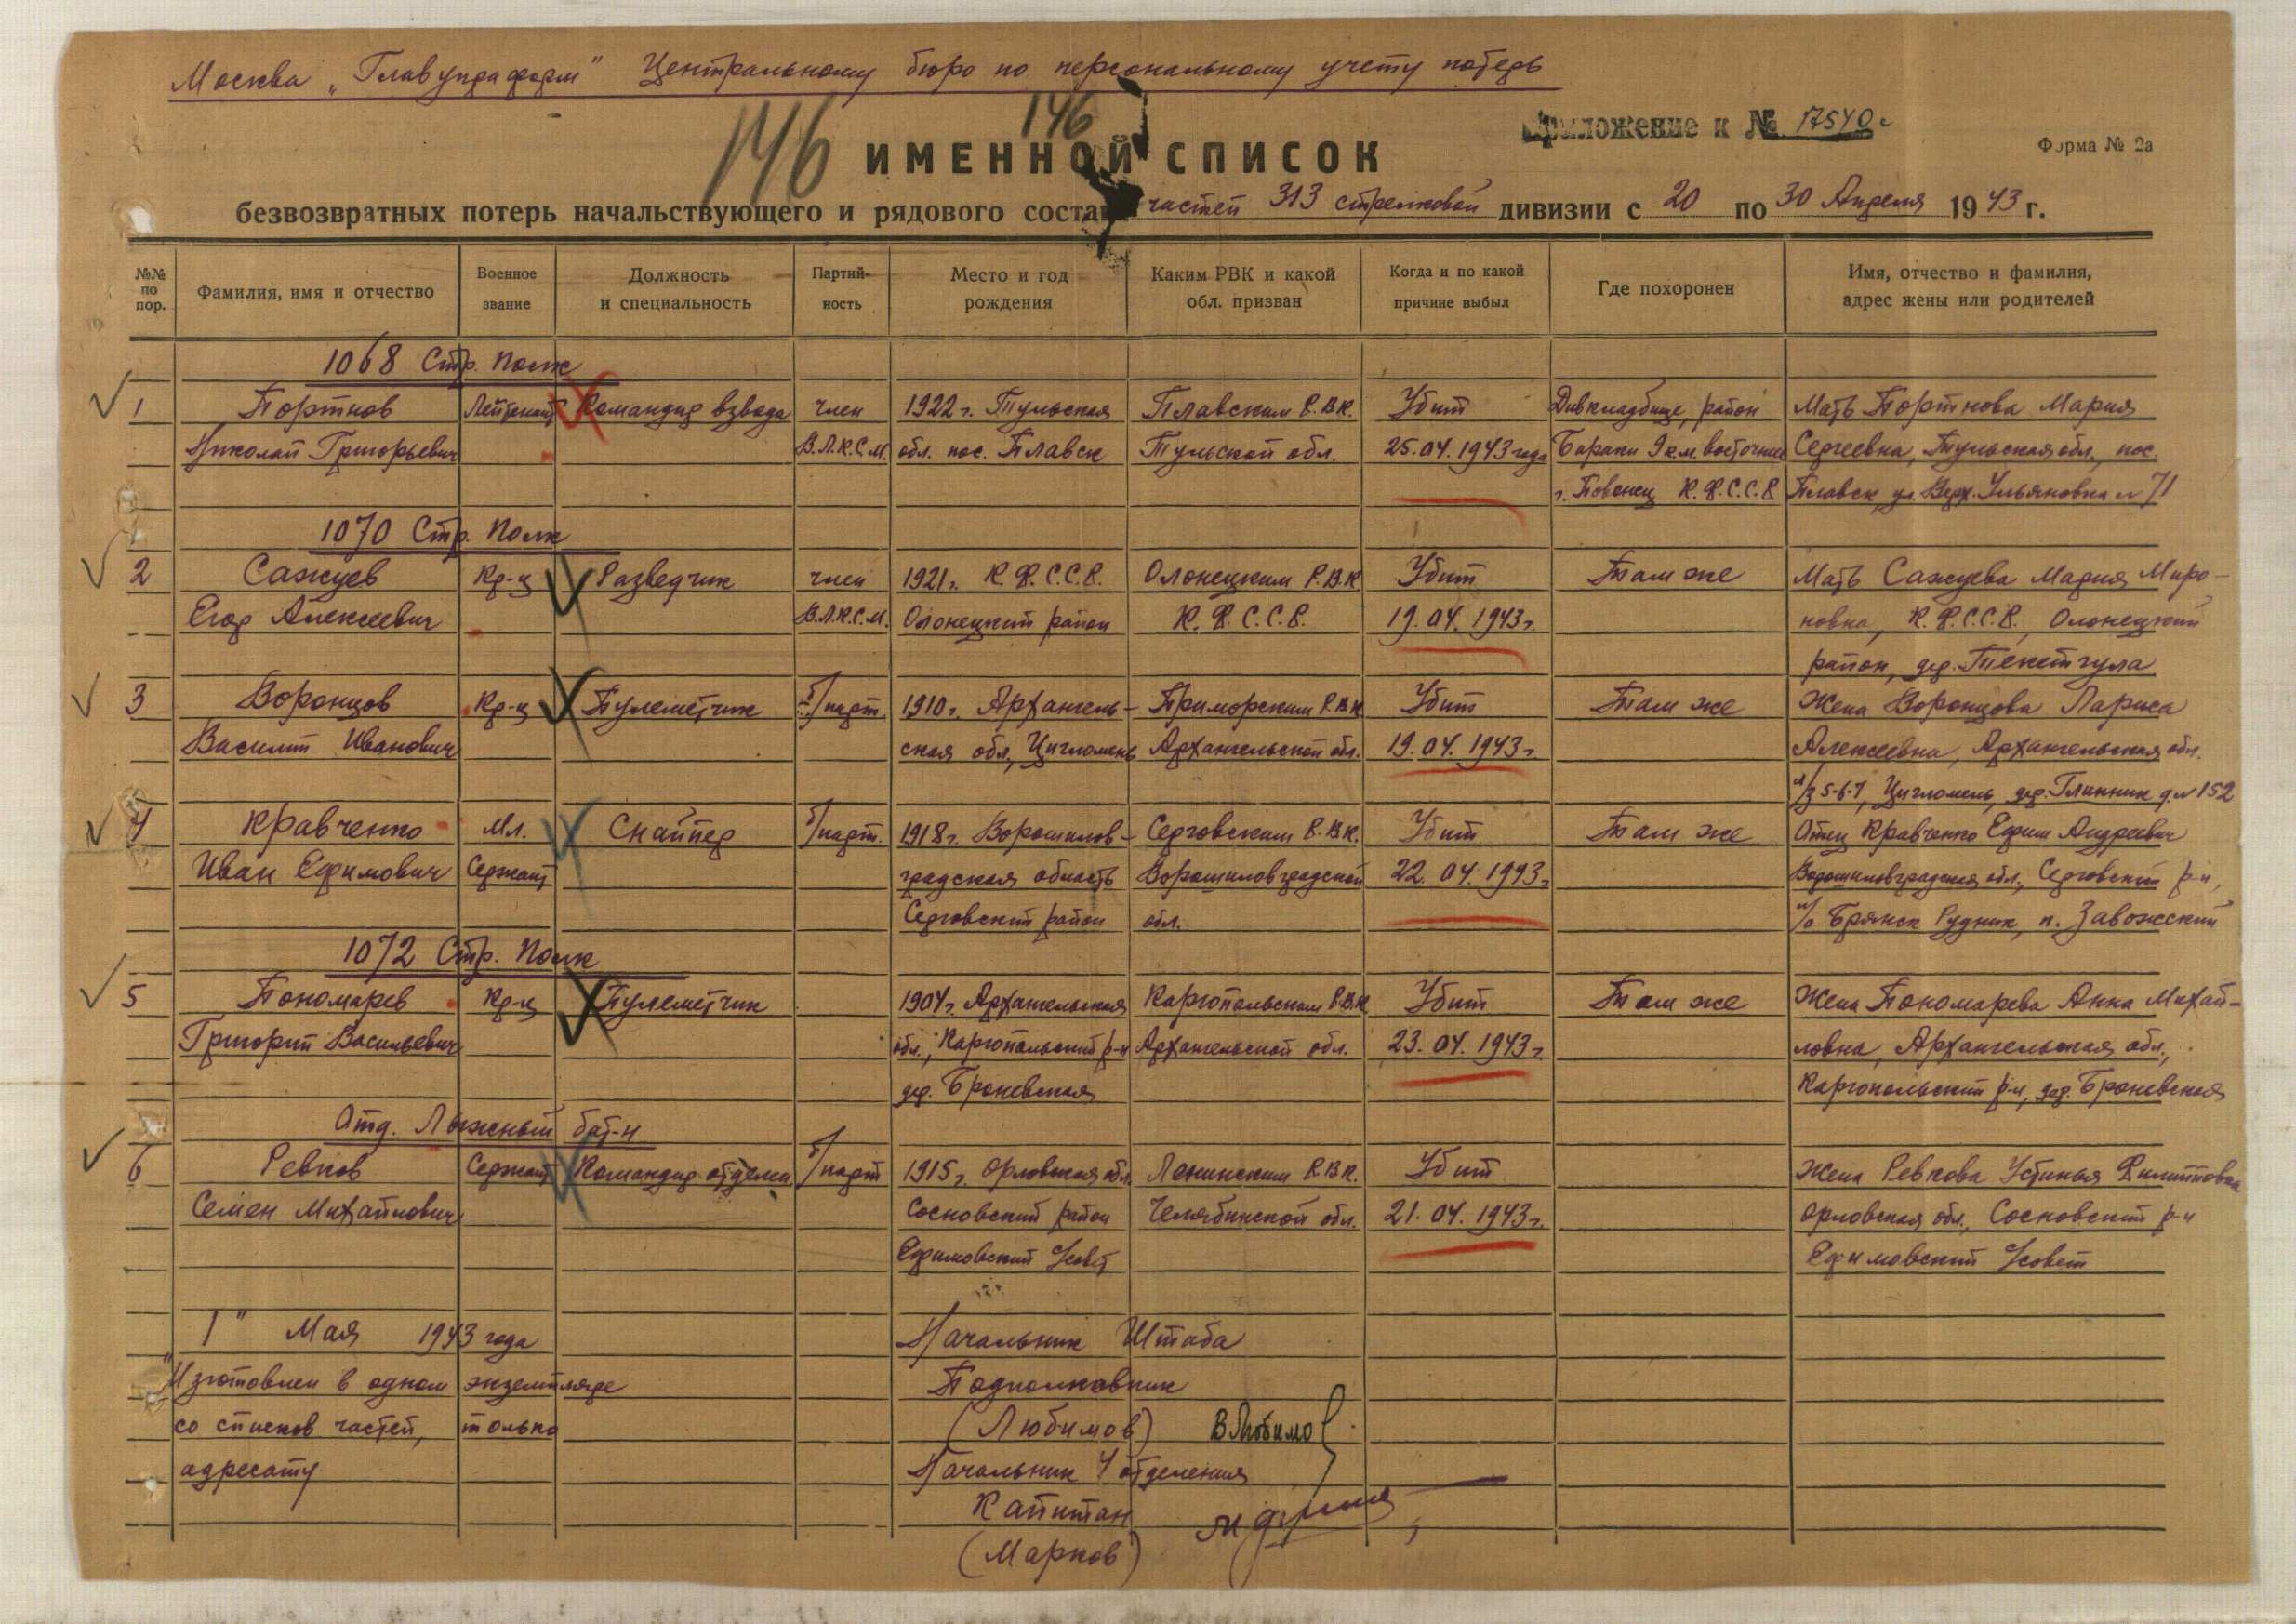 Москва „Главупраформ" Центральному бюро по персональному учету потерь
146 146
Приложение к № 17540с
ИМЕННОЙ СПИСОК
Форма № 2а
безвозвратных потерь начальствующего и рядового состава частей 313 стрелковой дивизии с 20 по 30 Апреля 1943 г.
№№ по пор.
Фамилия, имя и отчество
Военное звание
Должность и специальность
Партий-ность
Место и год рождения
Каким РВК и какой обл. призван
Когда и по какой причине выбыл
Где похоронен
Имя, отчество и фамилия, адрес жены или родителей
1068 Стр. Полк
1 Портнов Лейтенант Командир взвода член 1922 г. Тульская Плавским Р.В.К. Убит Дивкладбище, район Мать Портнова Мария
Николай Григорьевич В.Л.К.С.М. обл. пос. Плавск Тульской обл. 25.04.1943 года Бараки 9 км. восточнее Сергеевна, Тульская обл., пос.
г. Повенец К.Ф.С.С.Р. Плавск ул. Верх. Ульяновка № 71
1070 Стр. Полк
2 Сажуев Кр-ц Разведчик член 1921 г. К.Ф.С.С.Р. Олонецким Р.В.К Убит Там же Мать Сажуева Мария Миро-
Егор Алексеевич В.Л.К.С.М. Олонецкий район К.Ф.С.С.Р. 19.04.1943 г. новна, К.Ф.С.С.Р., Олонецкий
район, дер.
3 Воронцов Кр-ц Пулеметчик б/парт. 1910 г. Архангель- Приморским Р.В.К Убит Там же Жена Воронцова Лариса
Василий Иванович ская обл., Цигломень Архангельской обл. 19.04.1943 г. Алексеевна, Архангельская обл.
л/з 5-6-7, Цигломень, дер. Глинник д. № 152
4 Кравченко Мл. Снайпер б/парт. 1918 г. Ворошилов- Серговским Р.В.К. Убит Там же Отец Кравченко Ефим Андреевич
Иван Ефимович Сержант градская область Ворошиловградской 22.04.1943 г. Ворошиловградская обл., Серговский р-н,
Серговский район обл. п/о Брянск Рудник, п. Завожский
1072 Стр. Полк
5 Пономарев Кр-ц Пулеметчик 1904 г. Архангельская Каргопольским Р.В.К Убит Там же Жена Пономарева Анна Михай-
Григорий Васильевич обл., Каргопольский р-н Архангельской обл. 23.04.1943 г. ловна, Архангельская обл.,
дер. Броневская Каргопольский р-н, дер. Броневская
Отд. Лыжный бат-н
6 Ревков Сержант Командир отделен б/парт 1915 г. Орловская обл. Ленинским Р.В.К. Убит Жена Ревкова Устинья Филипповна
Семен Михайлович Сосновский район Челябинской обл. 21.04.1943 г. Орловская обл., Сосковский р-н
Ефимовский с/совет Ефимовский с/совет
"1" Мая 1943 года Начальник Штаба
Изготовлен в одном экземпляре Подполковник
со списков частей, только (Любимов) ВЛюбимов
адресату Начальник 4 отделения
Капитан
(Марков)